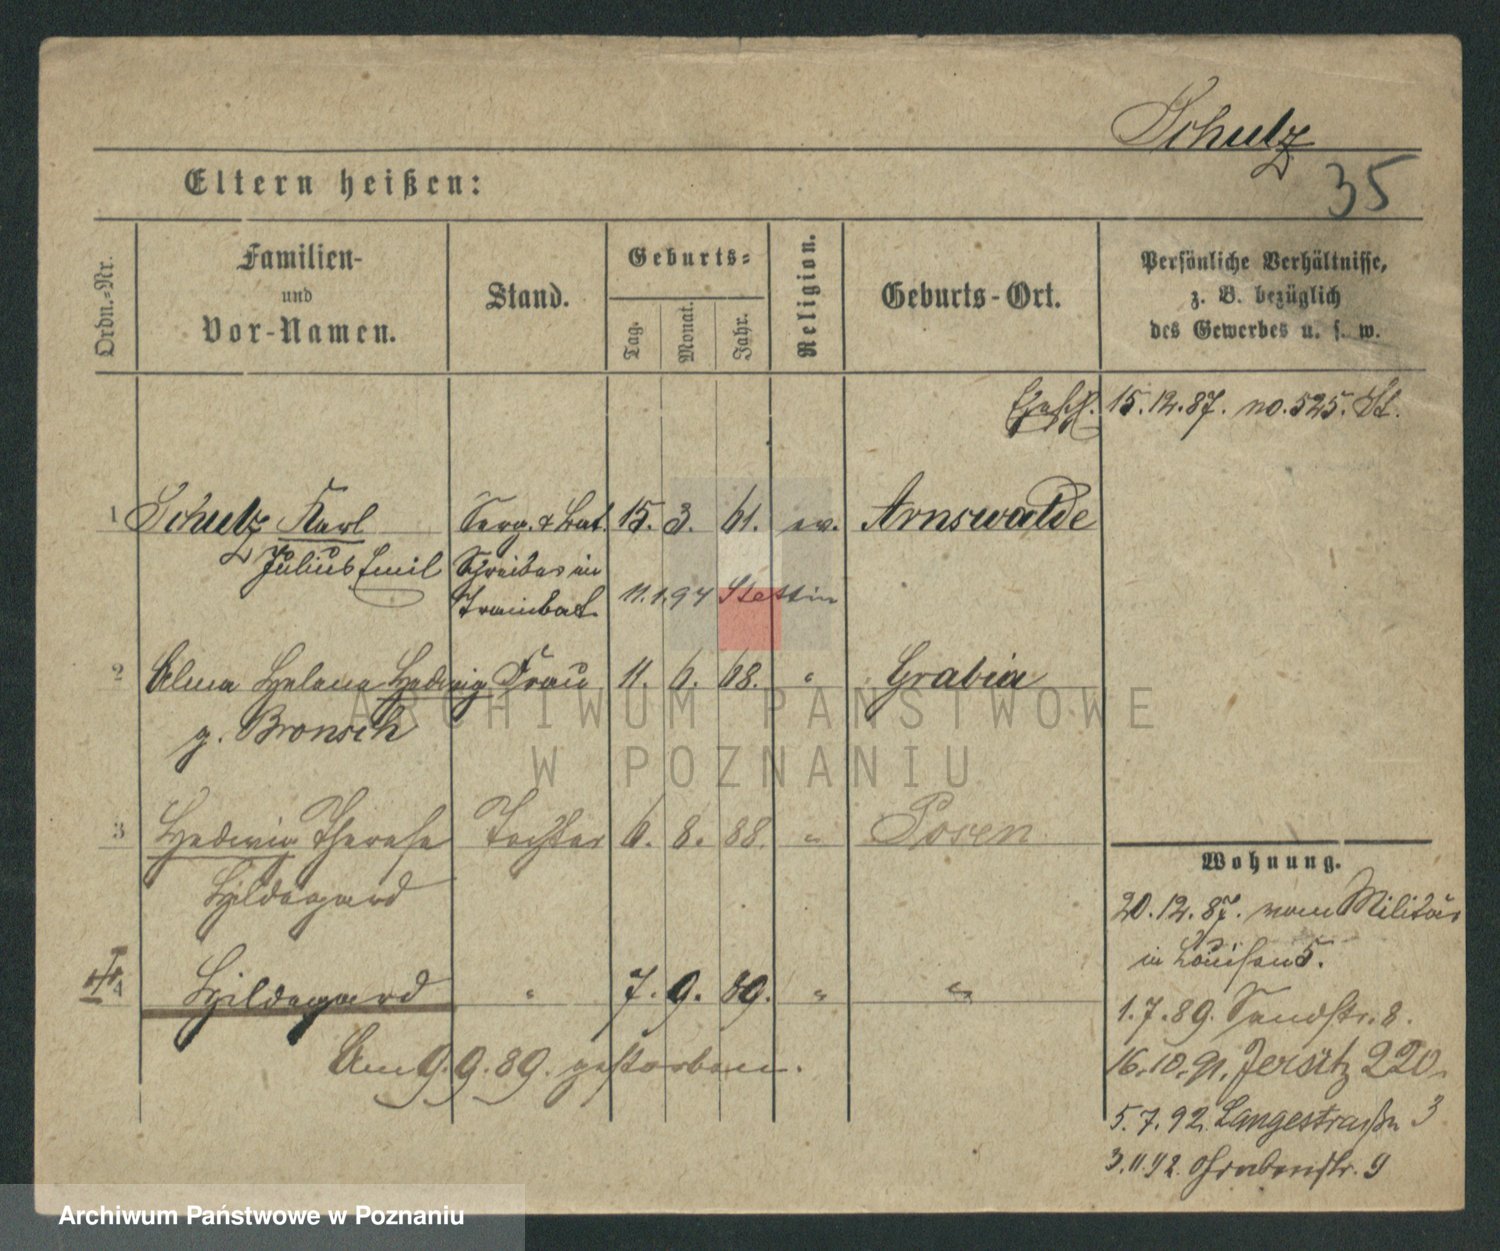 Schulz
35
Eltern heißen:
Ordn.-Nr.
Familien-
und
Vor-Namen.
Stand.
Geburts-
Tag.
Monat.
Jahr.
Religion.
Geburts-Ort.
Persönliche Verhältnisse,
z. B. bezüglich
des Gewerbes u. s. w.
15.12.87. no. 525. St.
1 Schulz Karl Serg. & Bat. 15. 3. 61. ev. Arnswalde
Julius Emil Schreiber im
Trainbat. 11.1.94 Stettin
2 Alma Helene Hedwig Frau 11. 6. 68. " Grabia
g. Bronsch
3 Hedwig Therese Tochter 6. 8. 88. " Posen
Hildegard
4 Hildegard " 7. 9. 89. " "
Am 9.9.89. gestorben.
Wohnung.
20.12.87. vom Militär
in Louisen 5.
1.7.89. Sandstr. 8.
16.10.91. Jersitz 220.
5.7.92. Langestraße 3
3.11.92. Grabenstr. 9
ARCHIWUM PAŃSTWOWE
W POZNANIU
Archiwum Państwowe w Poznaniu